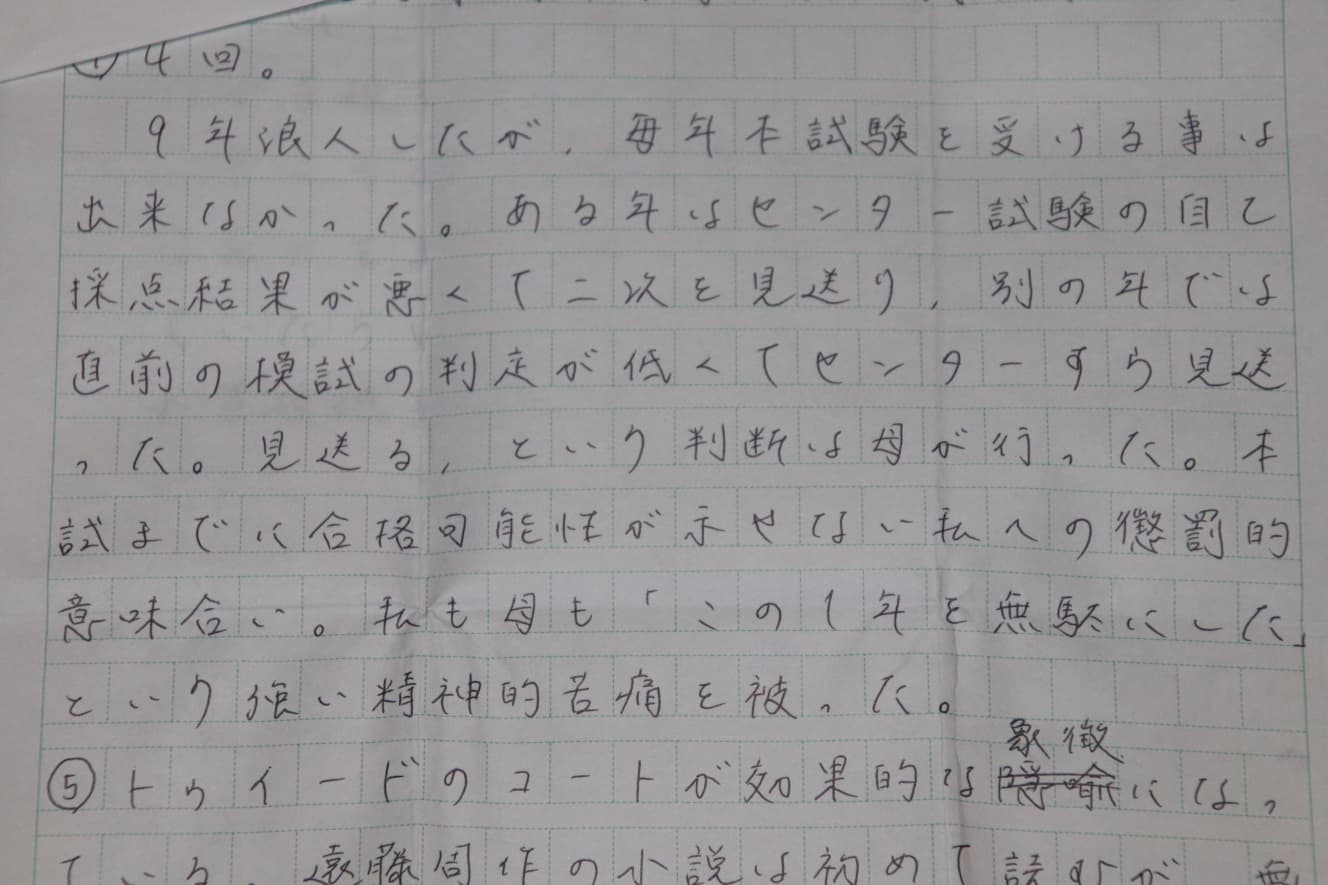 4回。
9年浪人したが、毎年本試験を受ける事は
出来なかった。ある年はセンター試験の自己
採点結果が悪くて二次を見送り、別の年では
直前の模試の判定が低くてセンターすら見送
った。見送る、という判断は母が行った。本
試までに合格可能性が示せない私への懲罰的
意味合い。私も母も「この1年を無駄にした」
という強い精神的苦痛を被った。
象徴
⑤トゥイードのコートが効果的な隠喩になっ
ている。遠藤周作の小説は初めて読むが、無